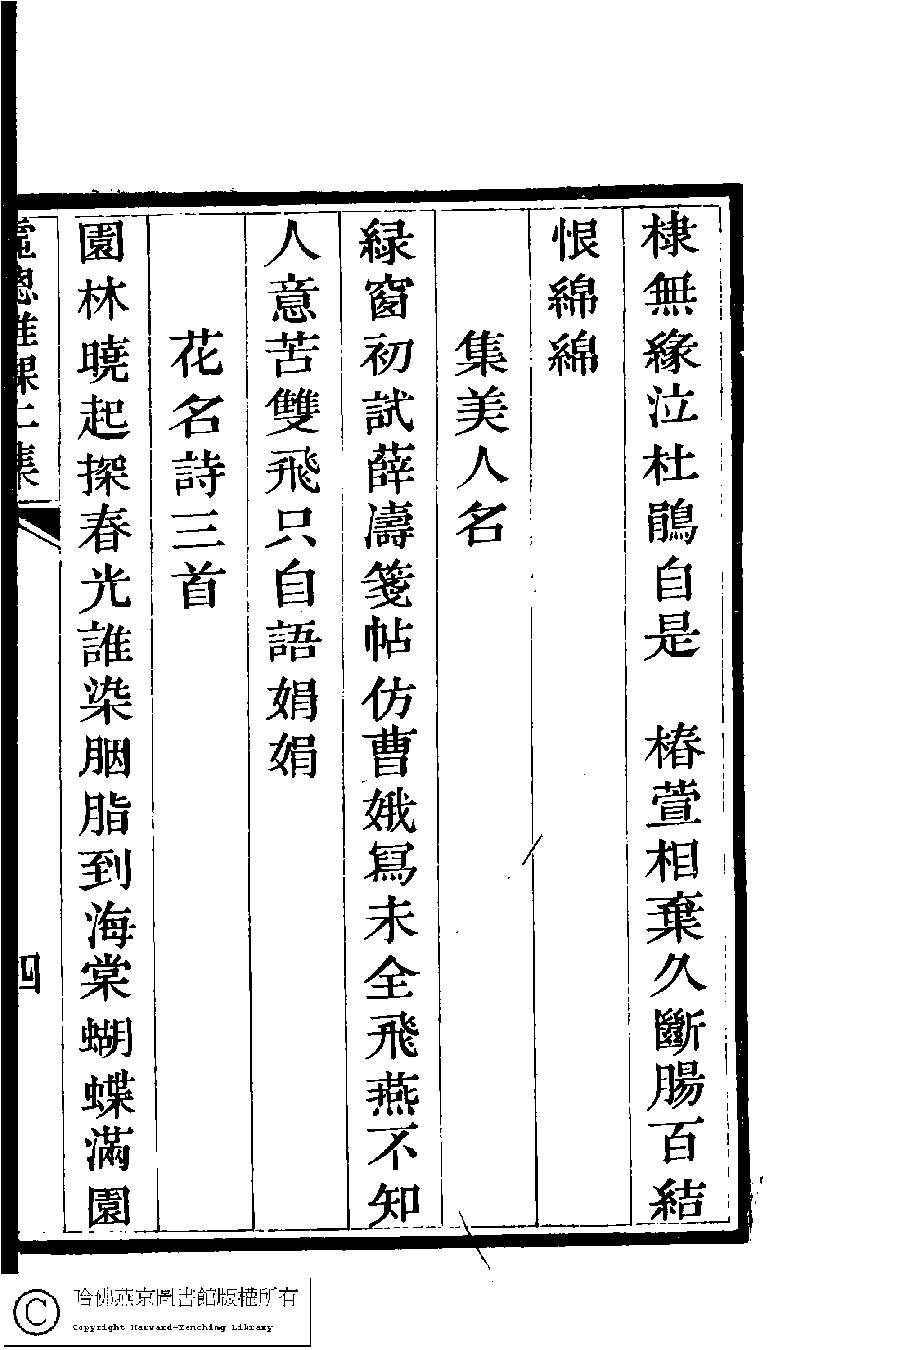 棣無緣泣杜鵑自是　椿萱相棄久斷腸百結
恨綿綿
集美人名
緑窗初試薛濤箋帖仿曹娥寫未全飛燕不知
人意苦雙飛只自語娟娟
花名詩三首
園林曉起探春光誰染胭脂到海棠蝴蝶滿園
課二集
四
哈佛燕京圖書館版權所有
Copyright Harvard-Yenching Library